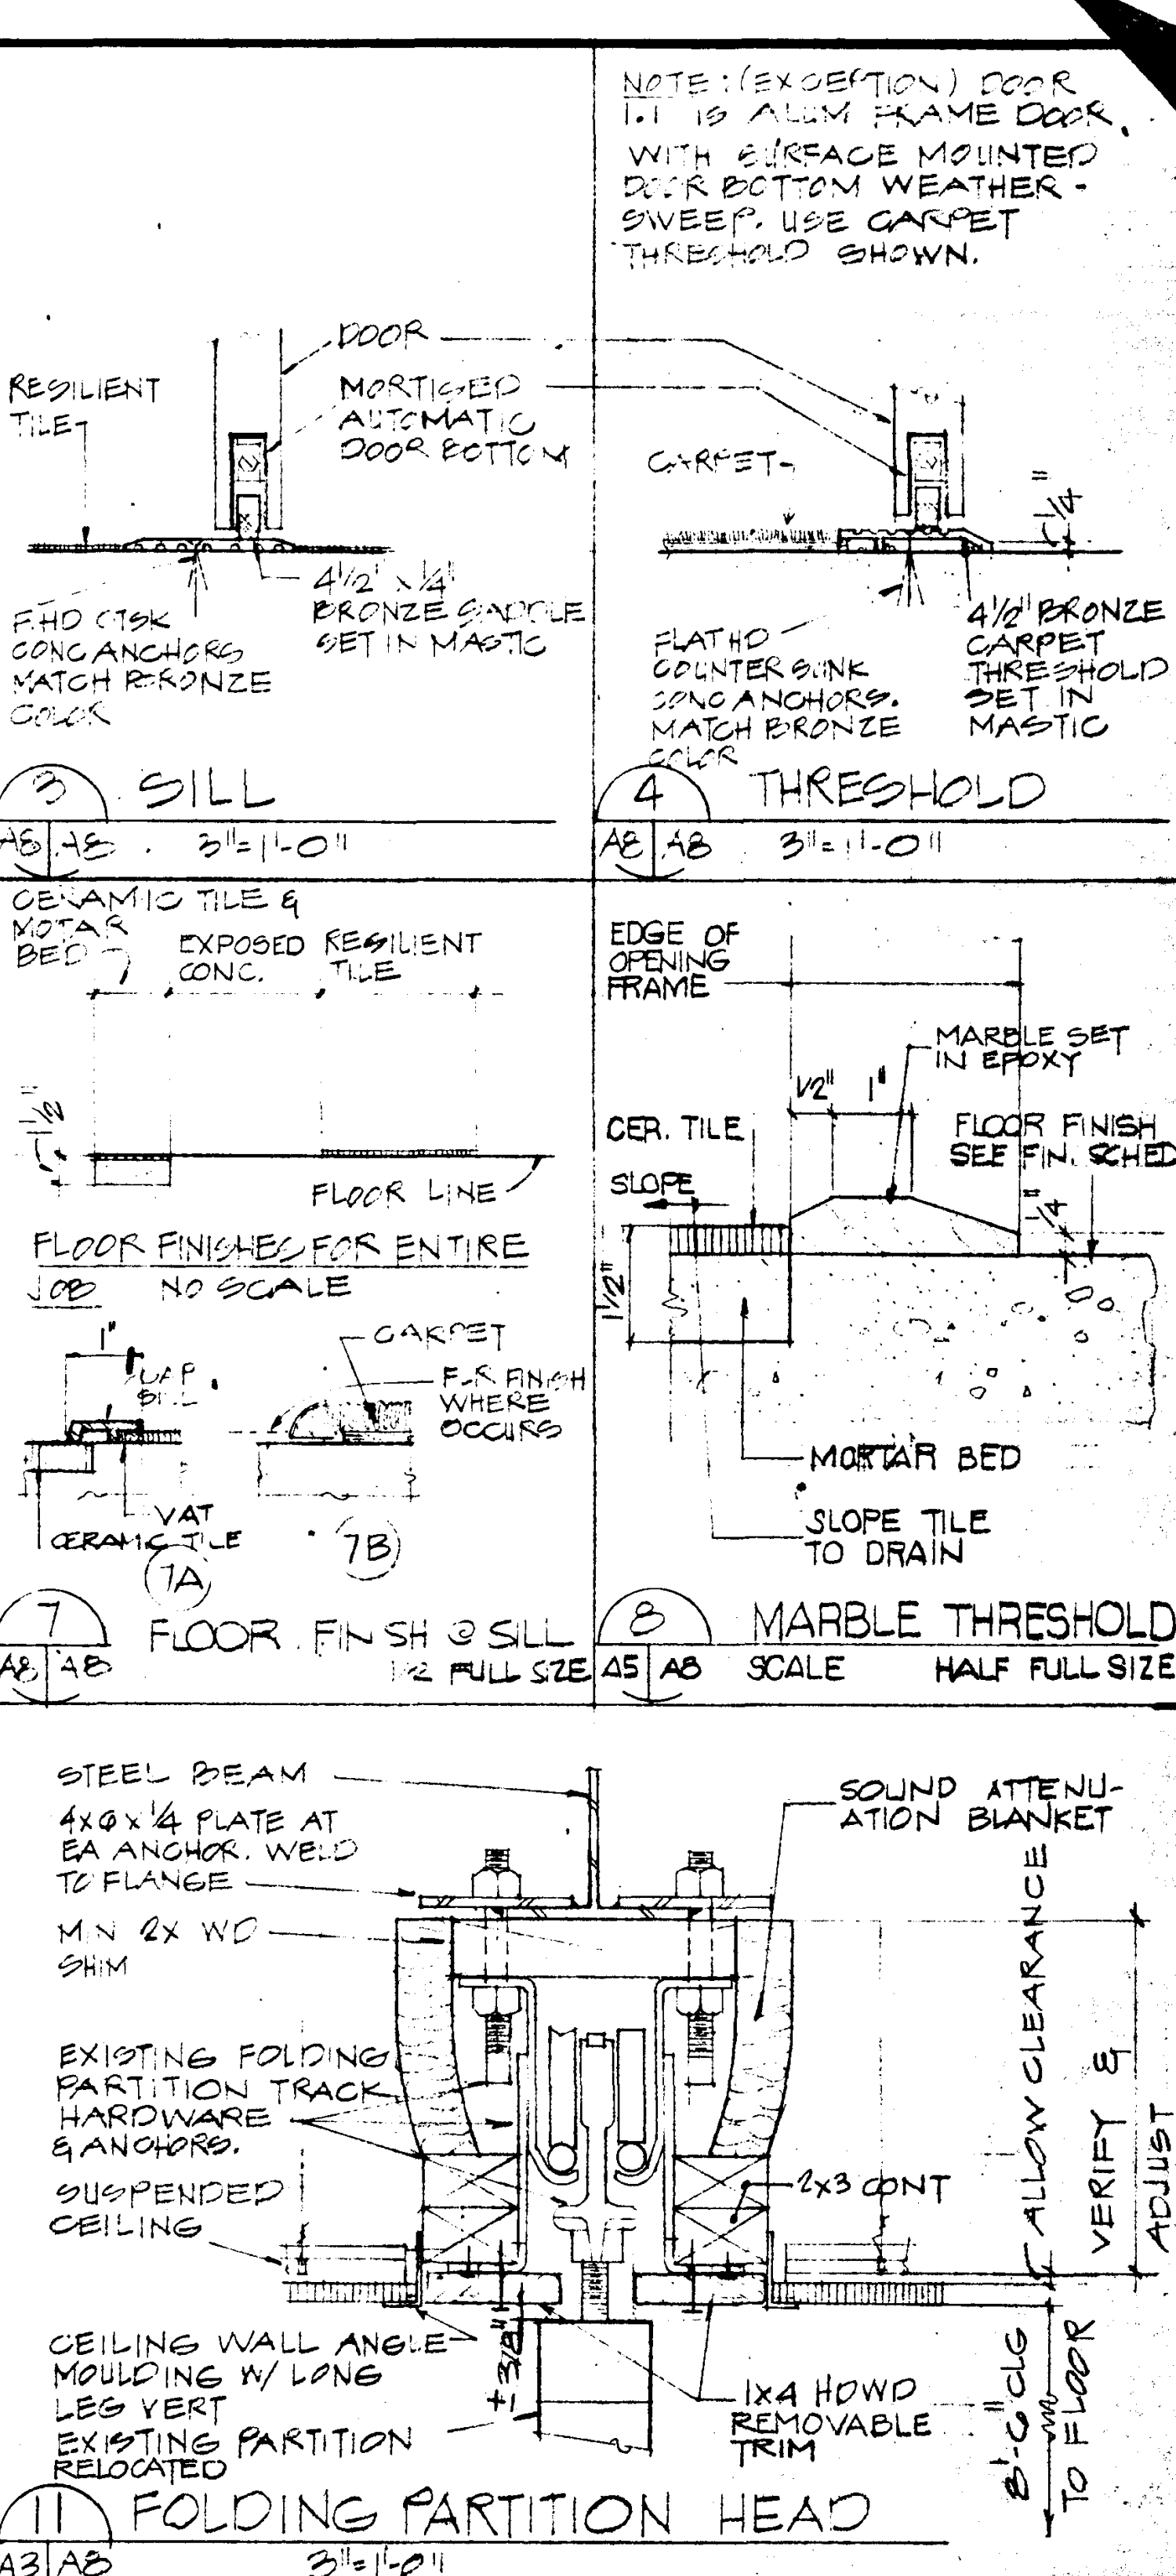 NOTE: (EXCEPTION) DOOR
1.1 IS ALUM FRAME DOOR
WITH SURFACE MOUNTED
DOOR BOTTOM WEATHER-
SWEEP. USE CARPET
THRESHOLD SHOWN.
DOOR
RESILIENT
TILE
MORTISED
AUTOMATIC
DOOR BOTTOM
4 1/2" x 1/4"
BRONZE SADDLE
SET IN MASTIC
F.HD CTSK
CONC ANCHORS
MATCH BRONZE
COLOR
3 SILL
A8 A8 3"=1'-0"
CARPET
1/4"
FLAT HD
COUNTER SUNK
CONC ANCHORS.
MATCH BRONZE
COLOR
4 1/2" BRONZE
CARPET
THRESHOLD
SET IN
MASTIC
4 THRESHOLD
A8 A8 3"=1'-0"
CERAMIC TILE &
MOTAR
BED
EXPOSED
CONC.
RESILIENT
TILE
1/2"
FLOOR LINE
FLOOR FINISHES FOR ENTIRE
JOB NO SCALE
1"
CARPET
FLR FINISH
WHERE
OCCURS
VAT
CERAMIC TILE
7A
7B
7 FLOOR FINISH @ SILL
A8 A8 1/2 FULL SIZE
EDGE OF
OPENING
FRAME
MARBLE SET
IN EPOXY
1/2" 1"
CER. TILE
SLOPE
FLOOR FINISH
SEE FIN. SCHED
1/4"
1 1/2"
MORTAR BED
SLOPE TILE
TO DRAIN
8 MARBLE THRESHOLD
A5 A8 SCALE HALF FULL SIZE
STEEL BEAM
4x6x1/4 PLATE AT
EA ANCHOR. WELD
TO FLANGE
MIN 2X WD
SHIM
EXISTING FOLDING
PARTITION TRACK
HARDWARE
& ANCHORS.
SUSPENDED
CEILING
CEILING WALL ANGLE
MOULDING W/ LONG
LEG VERT
EXISTING PARTITION
RELOCATED
±3/8"
SOUND ATTENU-
ATION BLANKET
2x3 CONT
1x4 HDWD
REMOVABLE
TRIM
ALLOW CLEARANCE
VERIFY &
ADJUST
8'-6" CLG
TO FLOOR
11 FOLDING PARTITION HEAD
A3 A8 3"=1'-0"